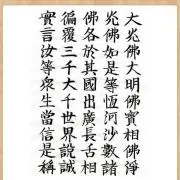 大光佛大明佛寶相佛淨
光佛如是等恆河沙數諸
佛各於其國出廣長舌相
徧覆三千大千世界說誠
實言汝等衆生當信是稱